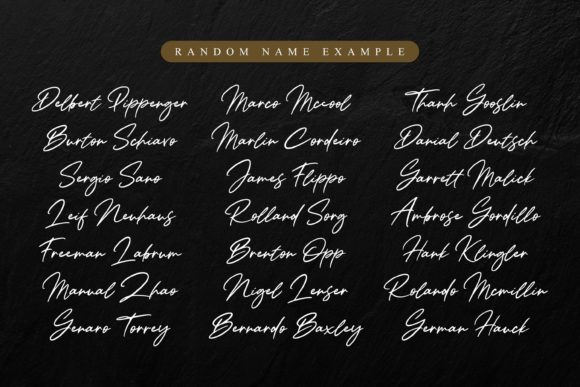 RANDOM NAME EXAMPLE
Delbert Pippenger
Burton Schiavo
Sergio Sano
Leif Neuhaus
Freeman Labrum
Manual Zhao
Genaro Torrey
Marco Mccool
Marlin Cordeiro
James Flippo
Rolland Sorg
Brenton Opp
Nigel Lenser
Bernardo Baxley
Thanh Gooslin
Danial Deutsch
Garrett Malick
Ambrose Gordillo
Hank Klingler
Rolando Mcmillin
German Hauck